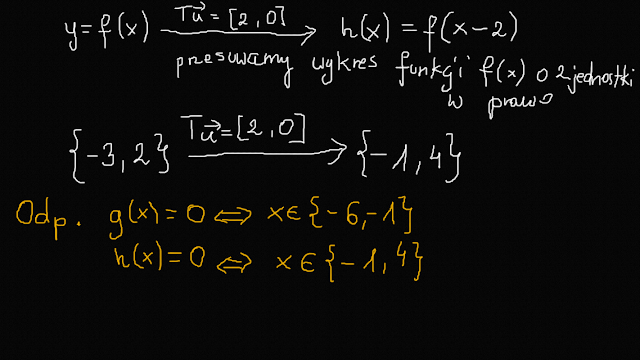 y=f(x) Tu⃗=[2,0] → h(x)=f(x-2)
presuwamy wykres funkcji f(x) o 2 jednostki
w prawo
{-3,2} Tu⃗=[2,0] → {-1,4}
Odp. g(x)=0 ⇔ x∈{-6,-1}
h(x)=0 ⇔ x∈{-1,4}